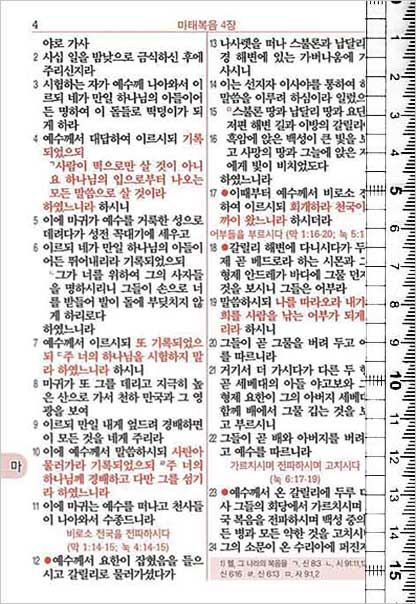 4
마태복음 4장
야로 가사
2 사십 일을 밤낮으로 금식하신 후에
주리신지라
3 시험하는 자가 예수께 나아와서 이
르되 네가 만일 하나님의 아들이어
든 명하여 이 돌들로 떡덩이가 되
게 하라
4 예수께서 대답하여 이르시되 기록
되었으되
ㄱ사람이 떡으로만 살 것이 아니
요 하나님의 입으로부터 나오는
모든 말씀으로 살 것이라
하였느니라 하시니
5 이에 마귀가 예수를 거룩한 성으로
데려다가 성전 꼭대기에 세우고
6 이르되 네가 만일 하나님의 아들이
어든 뛰어내리라 기록되었으되
ㄴ그가 너를 위하여 그의 사자들
을 명하시리니 그들이 손으로 너
를 받들어 발이 돌에 부딪치지 않
게 하리로다
하였느니라
7 예수께서 이르시되 또 기록되었으
되 ㄷ주 너의 하나님을 시험하지 말
라 하였느니라 하시니
8 마귀가 또 그를 데리고 지극히 높
은 산으로 가서 천하 만국과 그 영
광을 보여
9 이르되 만일 내게 엎드려 경배하면
이 모든 것을 네게 주리라
10 이에 예수께서 말씀하시되 사탄아
물러가라 기록되었으되 ㄹ주 너의
하나님께 경배하고 다만 그를 섬기
라 하였느니라
11 이에 마귀는 예수를 떠나고 천사들
이 나아와서 수종드니라
비로소 천국을 전파하시다
(막 1:14-15; 눅 4:14-15)
12 ●예수께서 요한이 잡혔음을 듣으
시고 갈릴리로 물러가셨다가
13 나사렛을 떠나 스불론과 납달리
경 해변에 있는 가버나움에 가
사시니
14 이는 선지자 이사야를 통하여 하
말씀을 이루려 하심이라 일렀으
15 ㅁ스불론 땅과 납달리 땅과 요단
저편 해변 길과 이방의 갈릴리여
16 흑암에 앉은 백성이 큰 빛을 보
고 사망의 땅과 그늘에 앉은 자
에게 빛이 비치었도다
하였느니라
17 ●이때부터 예수께서 비로소 전
하여 이르시되 회개하라 천국이
까이 왔느니라 하시더라
어부들을 부르시다 (막 1:16-20; 눅 5:1
18 ●갈릴리 해변에 다니시다가 두
제 곧 베드로라 하는 시몬과 그
형제 안드레가 바다에 그물 던지
것을 보시니 그들은 어부라
19 말씀하시되 나를 따라오라 내가
희를 사람을 낚는 어부가 되게
리라 하시니
20 그들이 곧 그물을 버려 두고 예
를 따르니라
21 거기서 더 가시다가 다른 두 형
곧 세베대의 아들 야고보와 그
형제 요한이 그의 아버지 세베대
함께 배에서 그물 깁는 것을 보
고 부르시니
22 그들이 곧 배와 아버지를 버려
고 예수를 따르니라
가르치시며 전파하시며 고치시다
(눅 6:17-19)
23 ●예수께서 온 갈릴리에 두루 다
사 그들의 회당에서 가르치시며
국 복음을 전파하시며 백성 중의
든 병과 모든 약한 것을 고치시
24 그의 소문이 온 수리아에 퍼진지
1) 헬, 그 나라의 복음을 ㄱ. 신 8:3 ㄴ. 시 91:11,
신 6:16 ㄹ. 신 6:13 ㅁ. 사 9:1,2
마
0
5
10
15